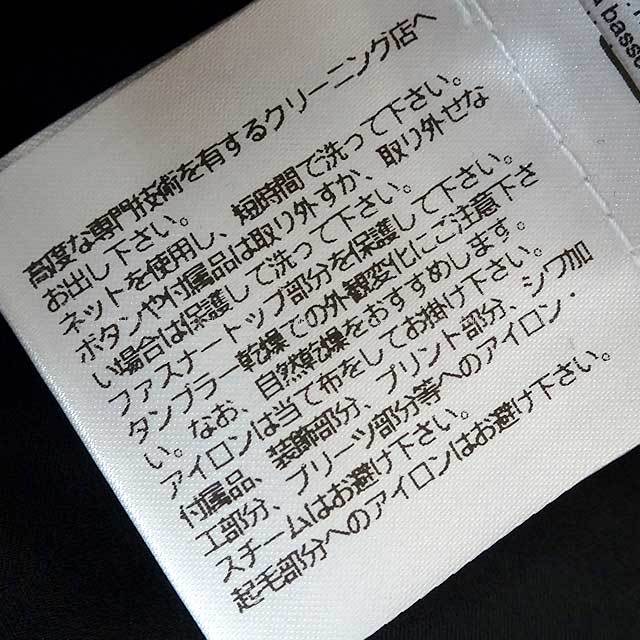 高度な専門技術を有するクリーニング店へ
お出し下さい。
ネットを使用し、短時間で洗って下さい。
ボタンや付属品は取り外すか、取り外せな
い場合は保護して洗って下さい。
ファスナートップ部分を保護して下さい。
タンブラー乾燥での外観変化にご注意下さ
い。なお、自然乾燥をおすすめします。
アイロンは当て布をしてお掛け下さい。
付属品、装飾部分、プリント部分、シワ加
工部分、プリーツ部分等へのアイロン・
スチームはお避け下さい。
起毛部分へのアイロンはお避け下さい。
a basse